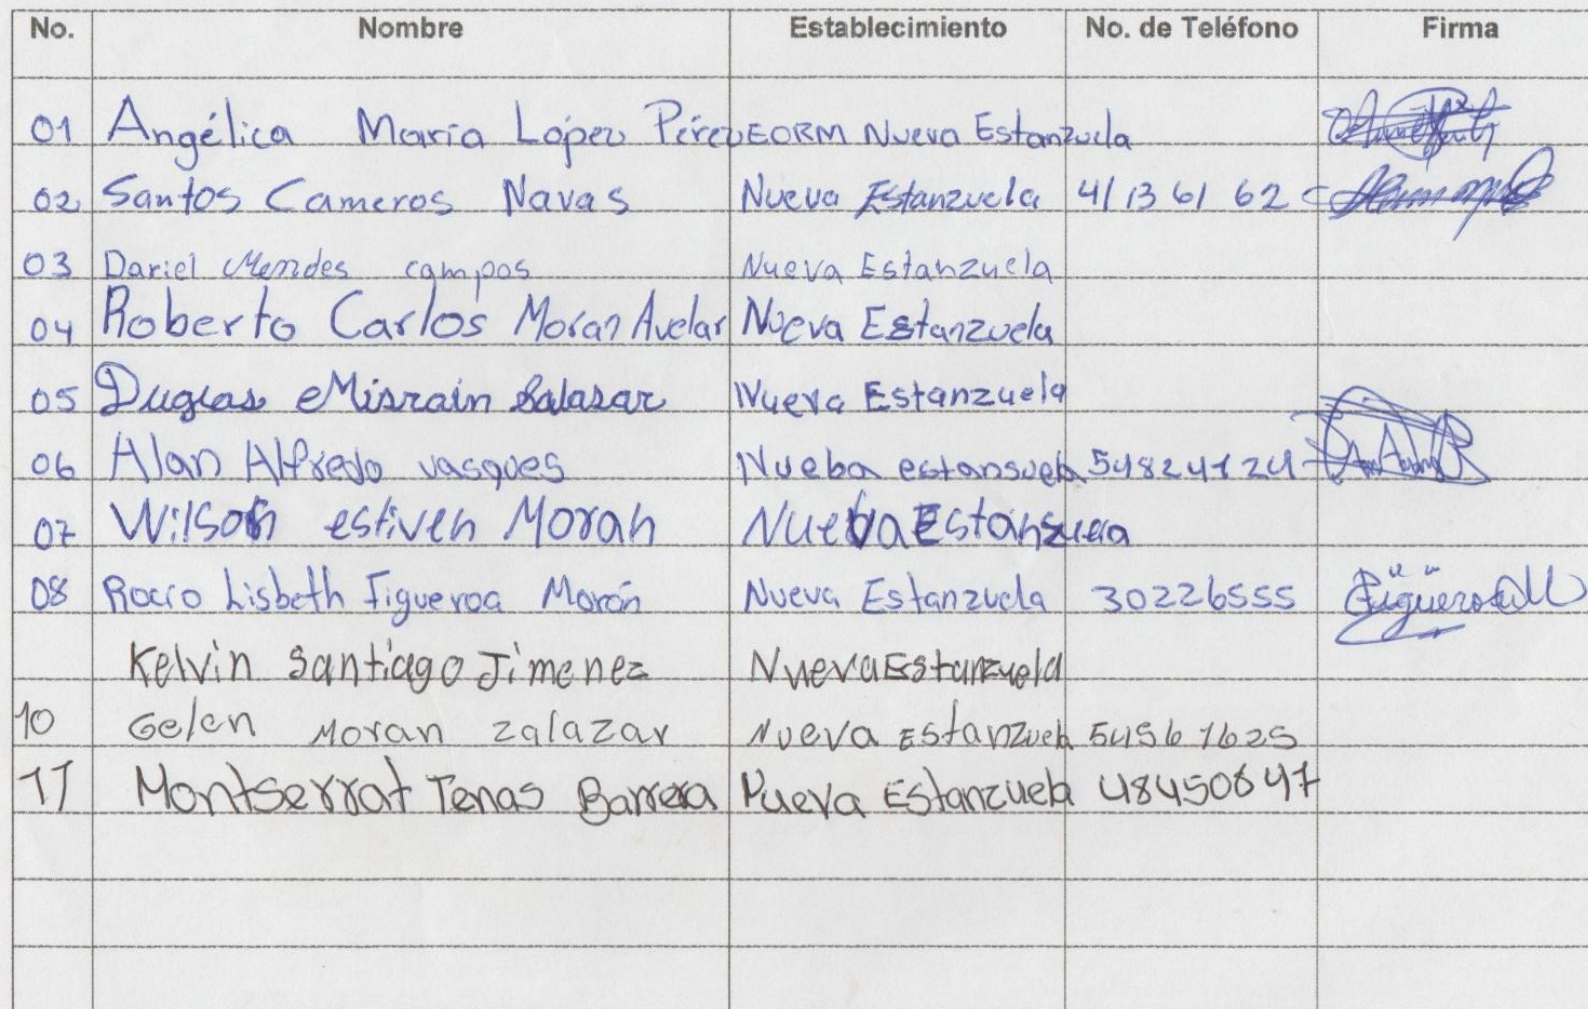 No. Nombre Establecimiento No. de Teléfono Firma
01 Angélica María López Pérez EORM Nueva Estanzuela
02 Santos Cameros Navas Nueva Estanzuela 41 13 61 62
03 Dariel Mendes campos Nueva Estanzuela
04 Roberto Carlos Moran Avelar Nueva Estanzuela
05 Duglas Misrain Salasar Nueva Estanzuela
06 Alan Alfredo vasques Nueba estansuela 54824124
07 Wilson estiven Moran Nueva Estansuela
08 Rocío Lisbeth Figueroa Morán Nueva Estanzuela 30226555
Kelvin Santiago Jimenez Nueva Estanzuela
10 Gelen Moran zalazar Nueva Estanzuela 54561625
11 Montserrat Tenas Barrera Nueva Estanzuela 48450847